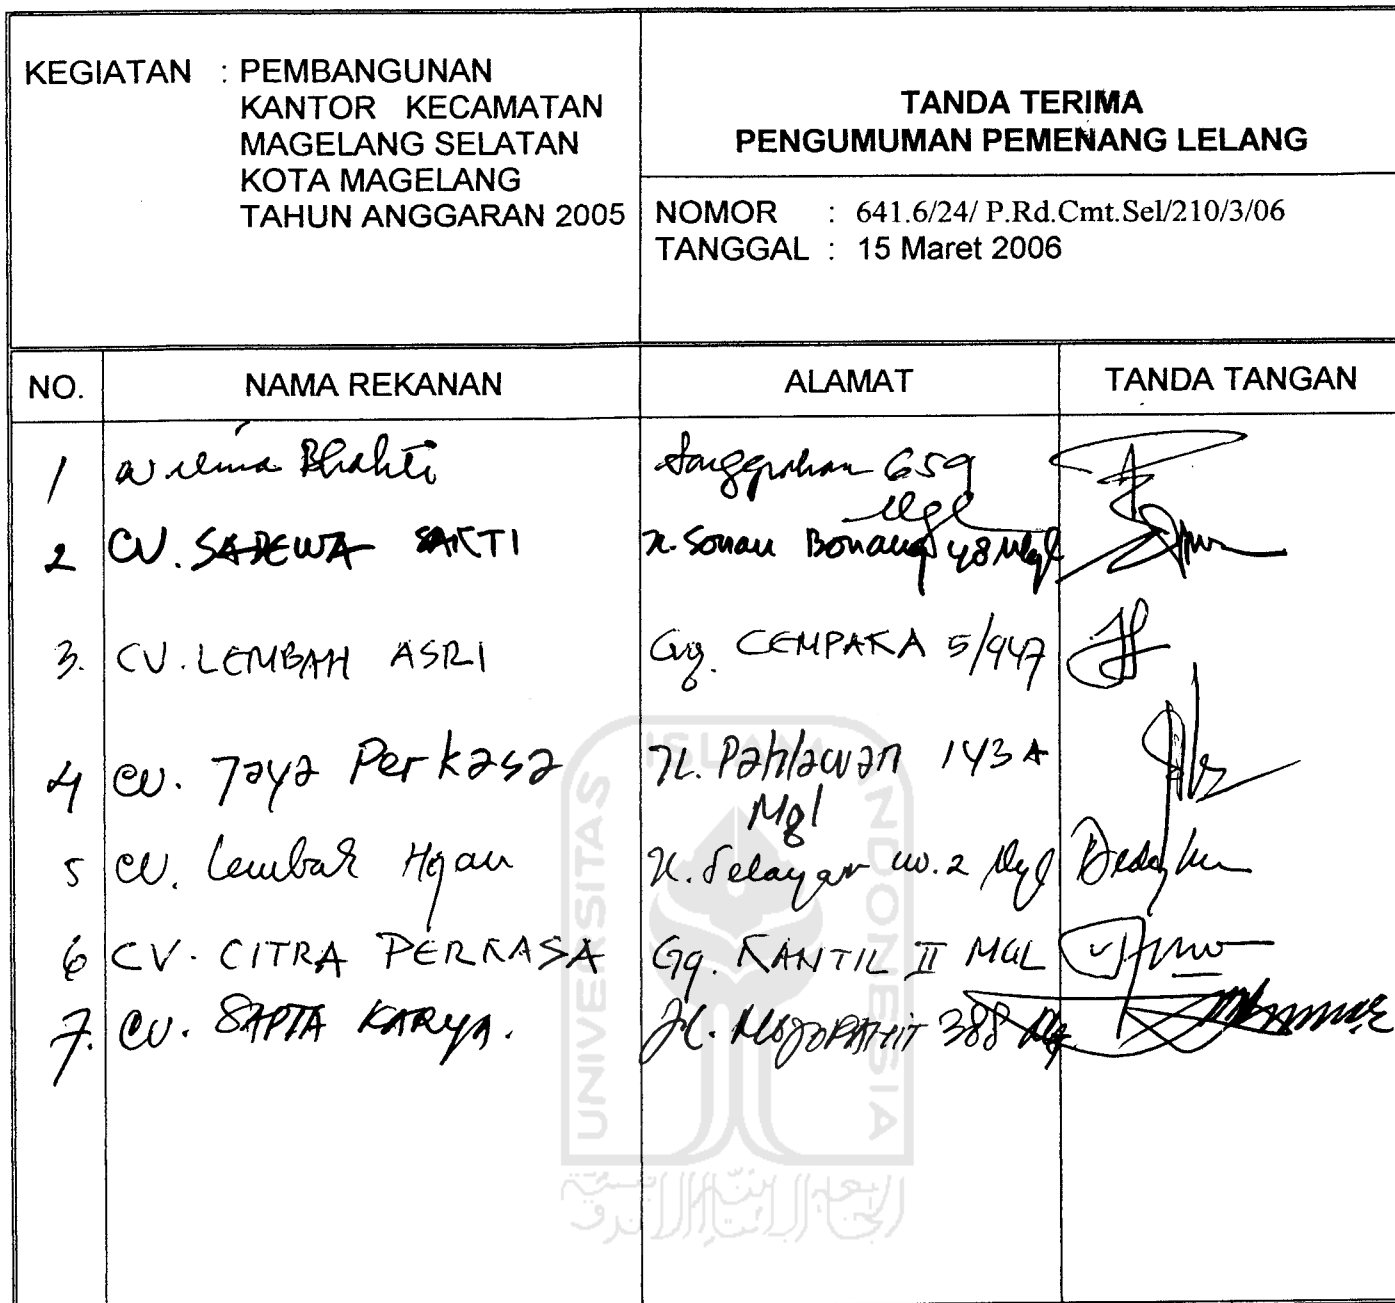 KEGIATAN : PEMBANGUNAN
KANTOR KECAMATAN
MAGELANG SELATAN
KOTA MAGELANG
TAHUN ANGGARAN 2005
TANDA TERIMA
PENGUMUMAN PEMENANG LELANG
NOMOR : 641.6/24/ P.Rd.Cmt.Sel/210/3/06
TANGGAL : 15 Maret 2006
NO. NAMA REKANAN ALAMAT TANDA TANGAN
1 Bhakti 659
Mgl
2 CV. SADEWA SAKTI Jl. Sonan Bonang 48 Mgl
3. CV. LEMBAH ASRI Gg. CEMPAKA 5/947
4 CV. Jaya Perkasa Jl. Pahlawan 143 A
Mgl
5 CV. Lembah Hijau Jl. Selayar no. 2 Mgl
6 CV. CITRA PERKASA Gg. KANTIL II MGL
7. CV. SAPTA KARYA. Jl. MOJOPAHIT 388 Mg
UNIVERSITAS ISLAM INDONESIA